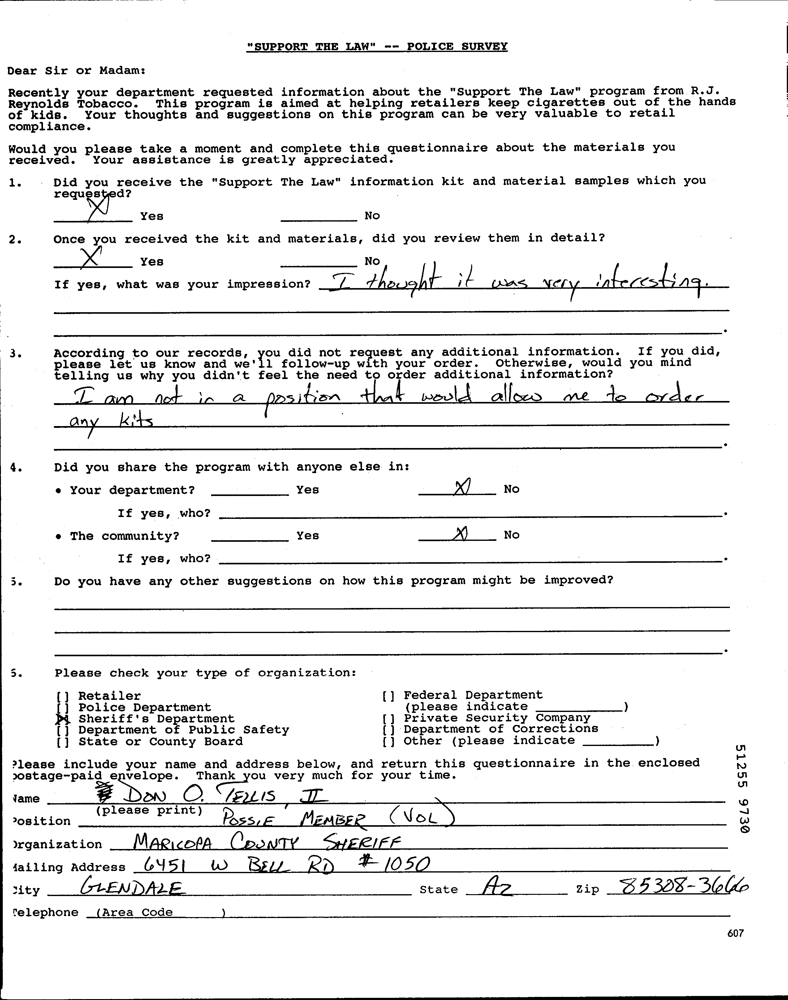 "SUPPORT THE LAW" -- POLICE SURVEY
Dear Sir or Madam:
Recently your department requested information about the "Support The Law" program from R.J.
Reynolds Tobacco. This program is aimed at helping retailers keep cigarettes out of the hands
of kids. Your thoughts and suggestions on this program can be very valuable to retail
compliance.
Would you please take a moment and complete this questionnaire about the materials you
received. Your assistance is greatly appreciated.
1. Did you receive the "Support The Law" information kit and material samples which you
requested?
X Yes No
2. Once you received the kit and materials, did you review them in detail?
X Yes No
If yes, what was your impression? I thought it was very interesting.
3. According to our records, you did not request any additional information. If you did,
please let us know and we'll follow-up with your order. Otherwise, would you mind
telling us why you didn't feel the need to order additional information?
I am not in a position that would allow me to order
any kits
4. Did you share the program with anyone else in:
• Your department? Yes X No
If yes, who?
• The community? Yes X No
If yes, who?
5. Do you have any other suggestions on how this program might be improved?
5. Please check your type of organization:
[] Retailer [] Federal Department
[] Police Department (please indicate )
[X] Sheriff's Department [] Private Security Company
[] Department of Public Safety [] Department of Corrections
[] State or County Board [] Other (please indicate )
Please include your name and address below, and return this questionnaire in the enclosed
postage-paid envelope. Thank you very much for your time.
Name DON O. TELLIS II
(please print)
Position POSSIE MEMBER (VOL)
Organization MARICOPA COUNTY SHERIFF
Mailing Address 6451 W BELL RD #1050
City GLENDALE State AZ Zip 85308-3666
Telephone (Area Code )
51255 9730
607